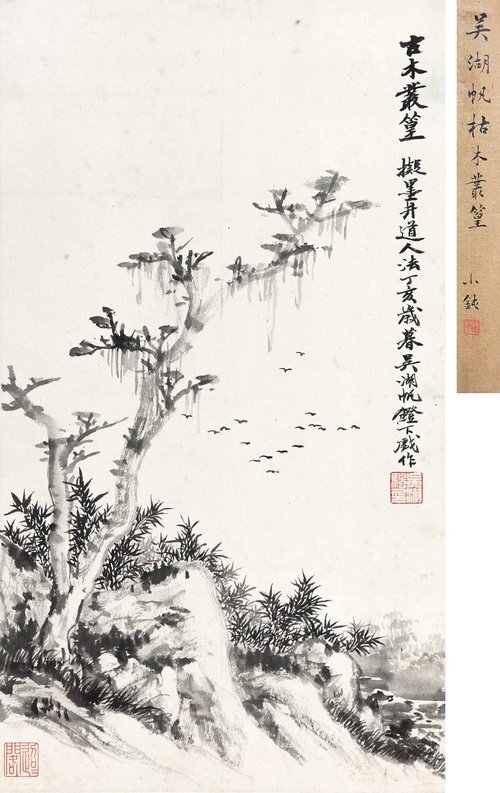 古木叢篁 擬墨井道人法丁亥歲暮吳湖帆鐙下戲作
吳湖帆枯木叢篁
小鈍